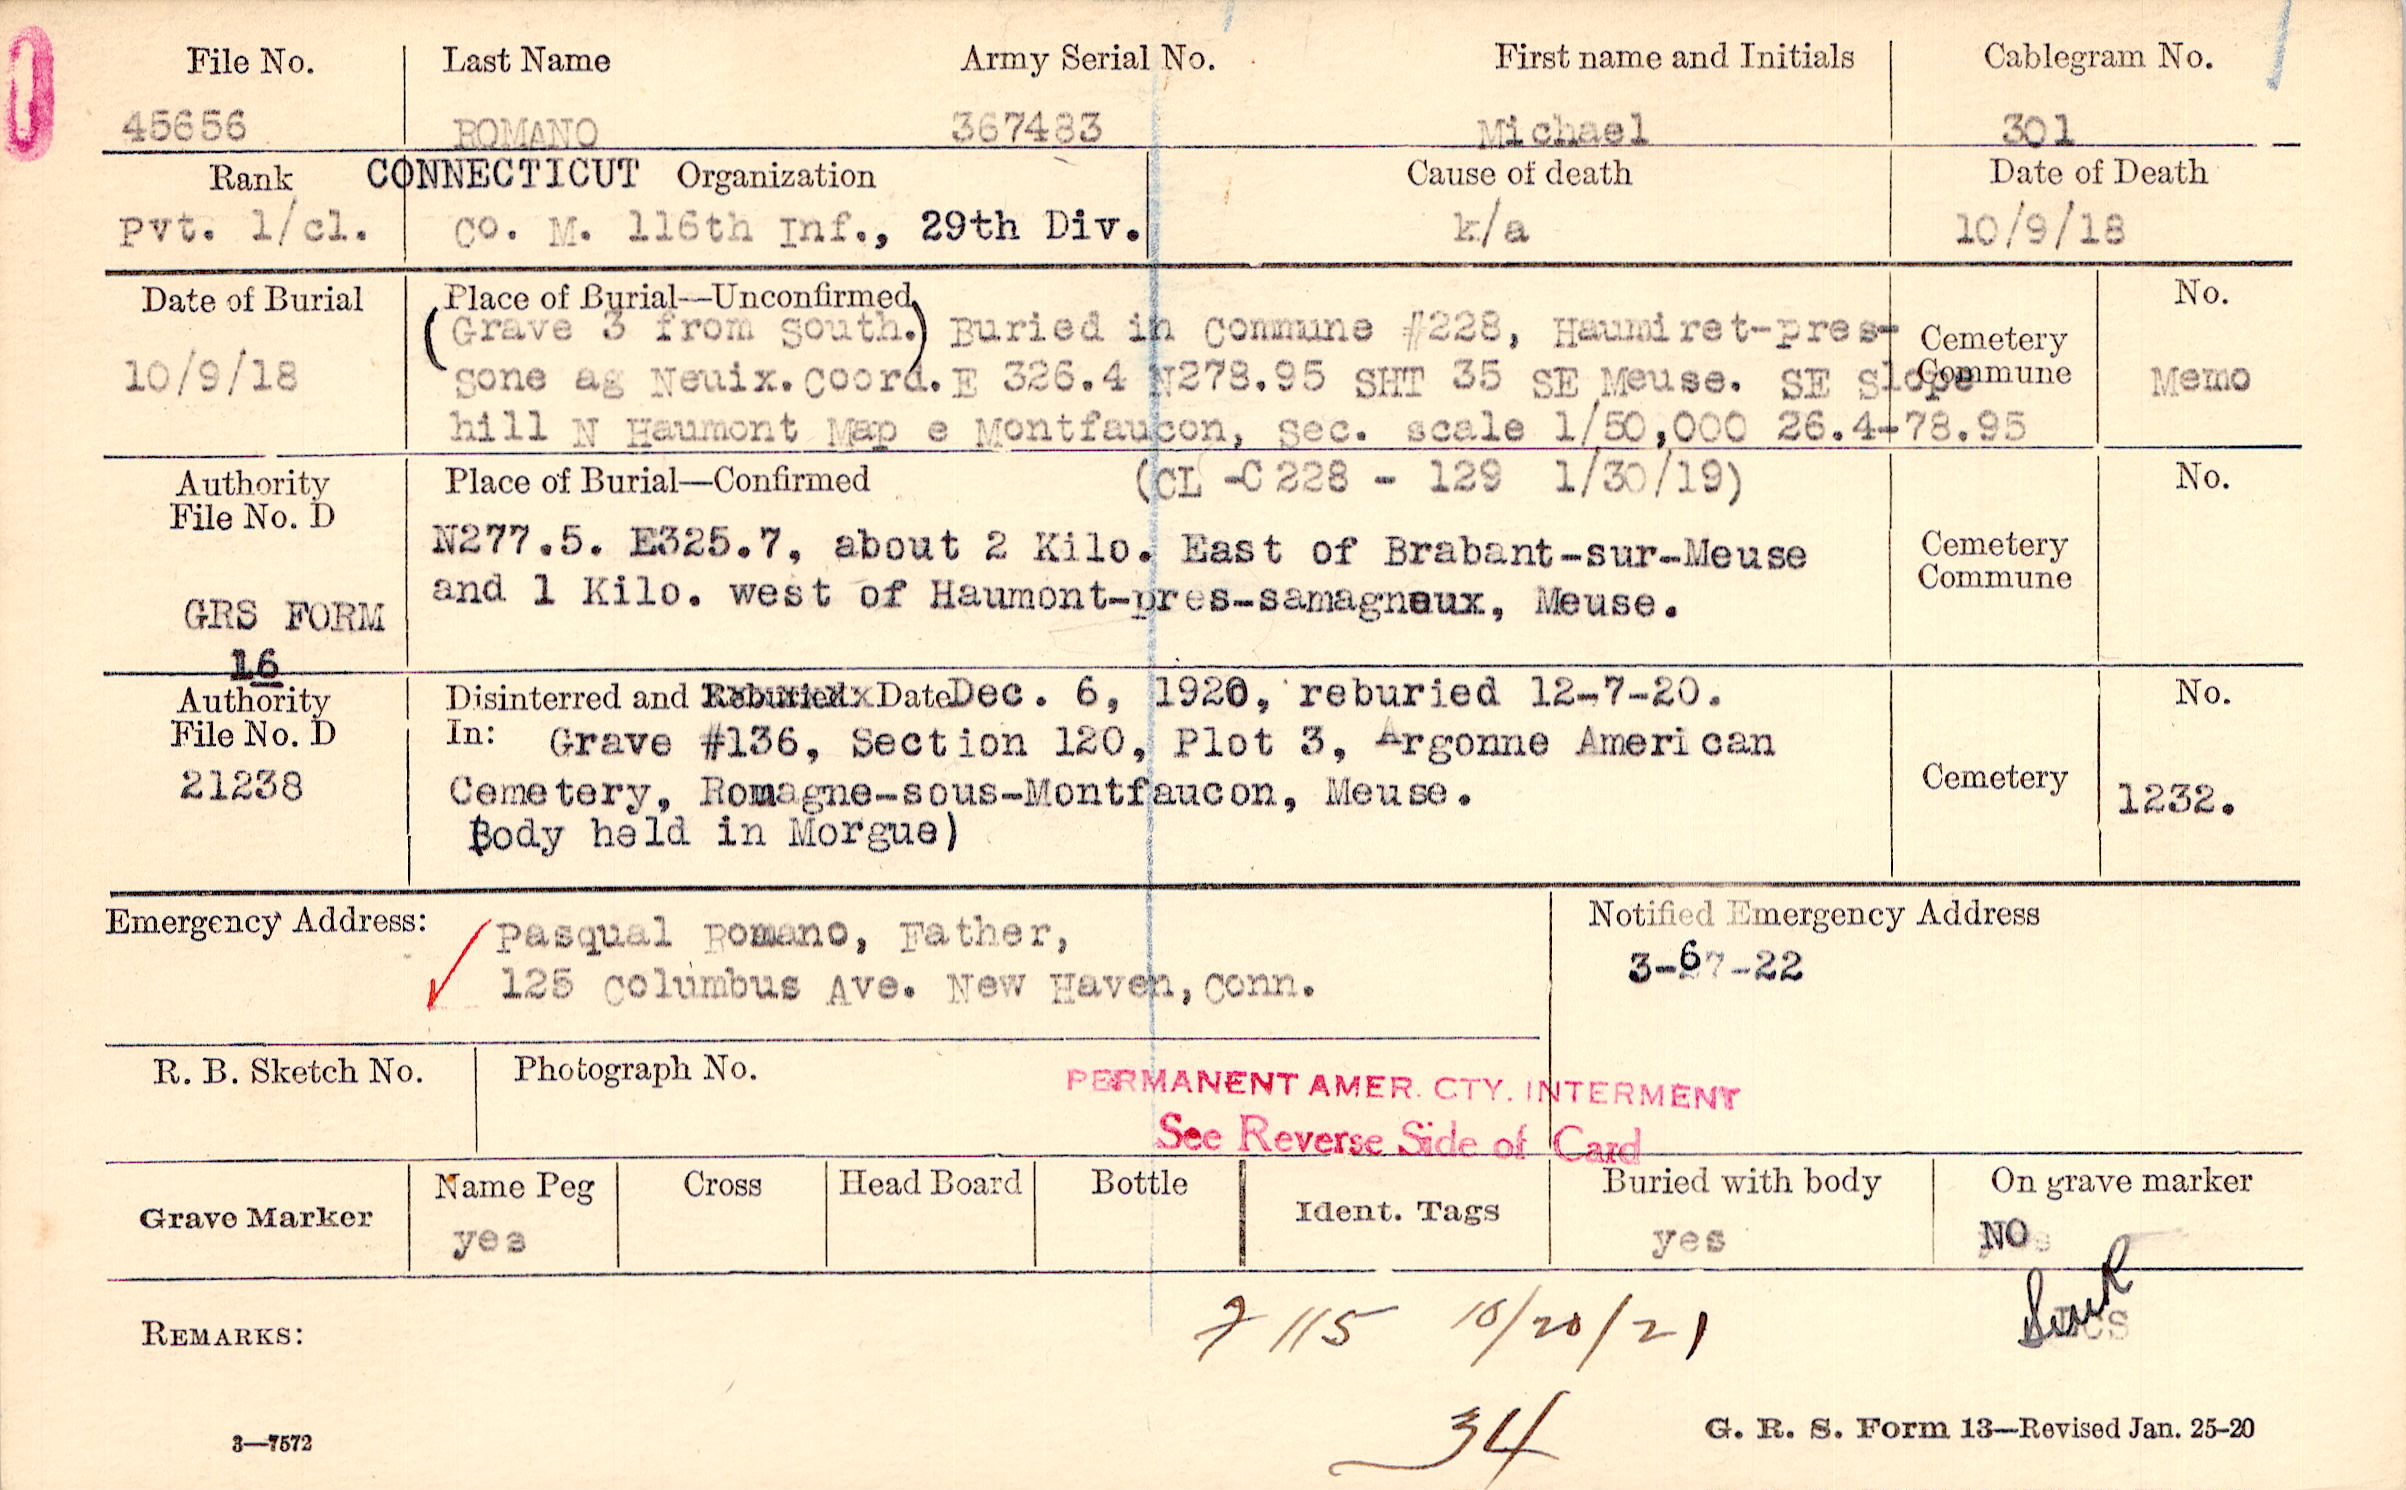 File No. Last Name Army Serial No. First name and Initials Cablegram No.
45656 ROMANO 367483 Michael 301
Rank CONNECTICUT Organization Cause of death Date of Death
Pvt. 1/cl. Co. M. 116th Inf., 29th Div. k/a 10/9/18
Date of Burial Place of Burial—Unconfirmed No.
(Grave 3 from South.) Buried in Commune #228, Haumiret-pres- Cemetery
10/9/18 sone ag Neuix. Coord. E 326.4 N278.95 SHT 35 SE Meuse. SE Slope Commune Memo
hill N Haumont Map e Montfaucon, Sec. scale 1/50,000 26.4-78.95
Authority Place of Burial—Confirmed (CL -C 228 - 129 1/30/19) No.
File No. D
N277.5. E325.7, about 2 Kilo. East of Brabant-sur-Meuse Cemetery
and 1 Kilo. west of Haumont-pres-samagneux, Meuse. Commune
GRS FORM
16
Authority Disinterred and Reburied Date Dec. 6, 1920, reburied 12-7-20. No.
File No. D In: Grave #136, Section 120, Plot 3, Argonne American
21238 Cemetery, Romagne-sous-Montfaucon, Meuse. Cemetery 1232.
Body held in Morgue)
Emergency Address: Pasqual Romano, Father, Notified Emergency Address
125 Columbus Ave. New Haven, Conn. 3-67-22
R. B. Sketch No. Photograph No.
PERMANENT AMER. CTY. INTERMENT
See Reverse Side of Card
Grave Marker Name Peg Cross Head Board Bottle Ident. Tags Buried with body On grave marker
yes yes NO
REMARKS: 115 10/20/21
34
3—7572 G. R. S. Form 13—Revised Jan. 25-20